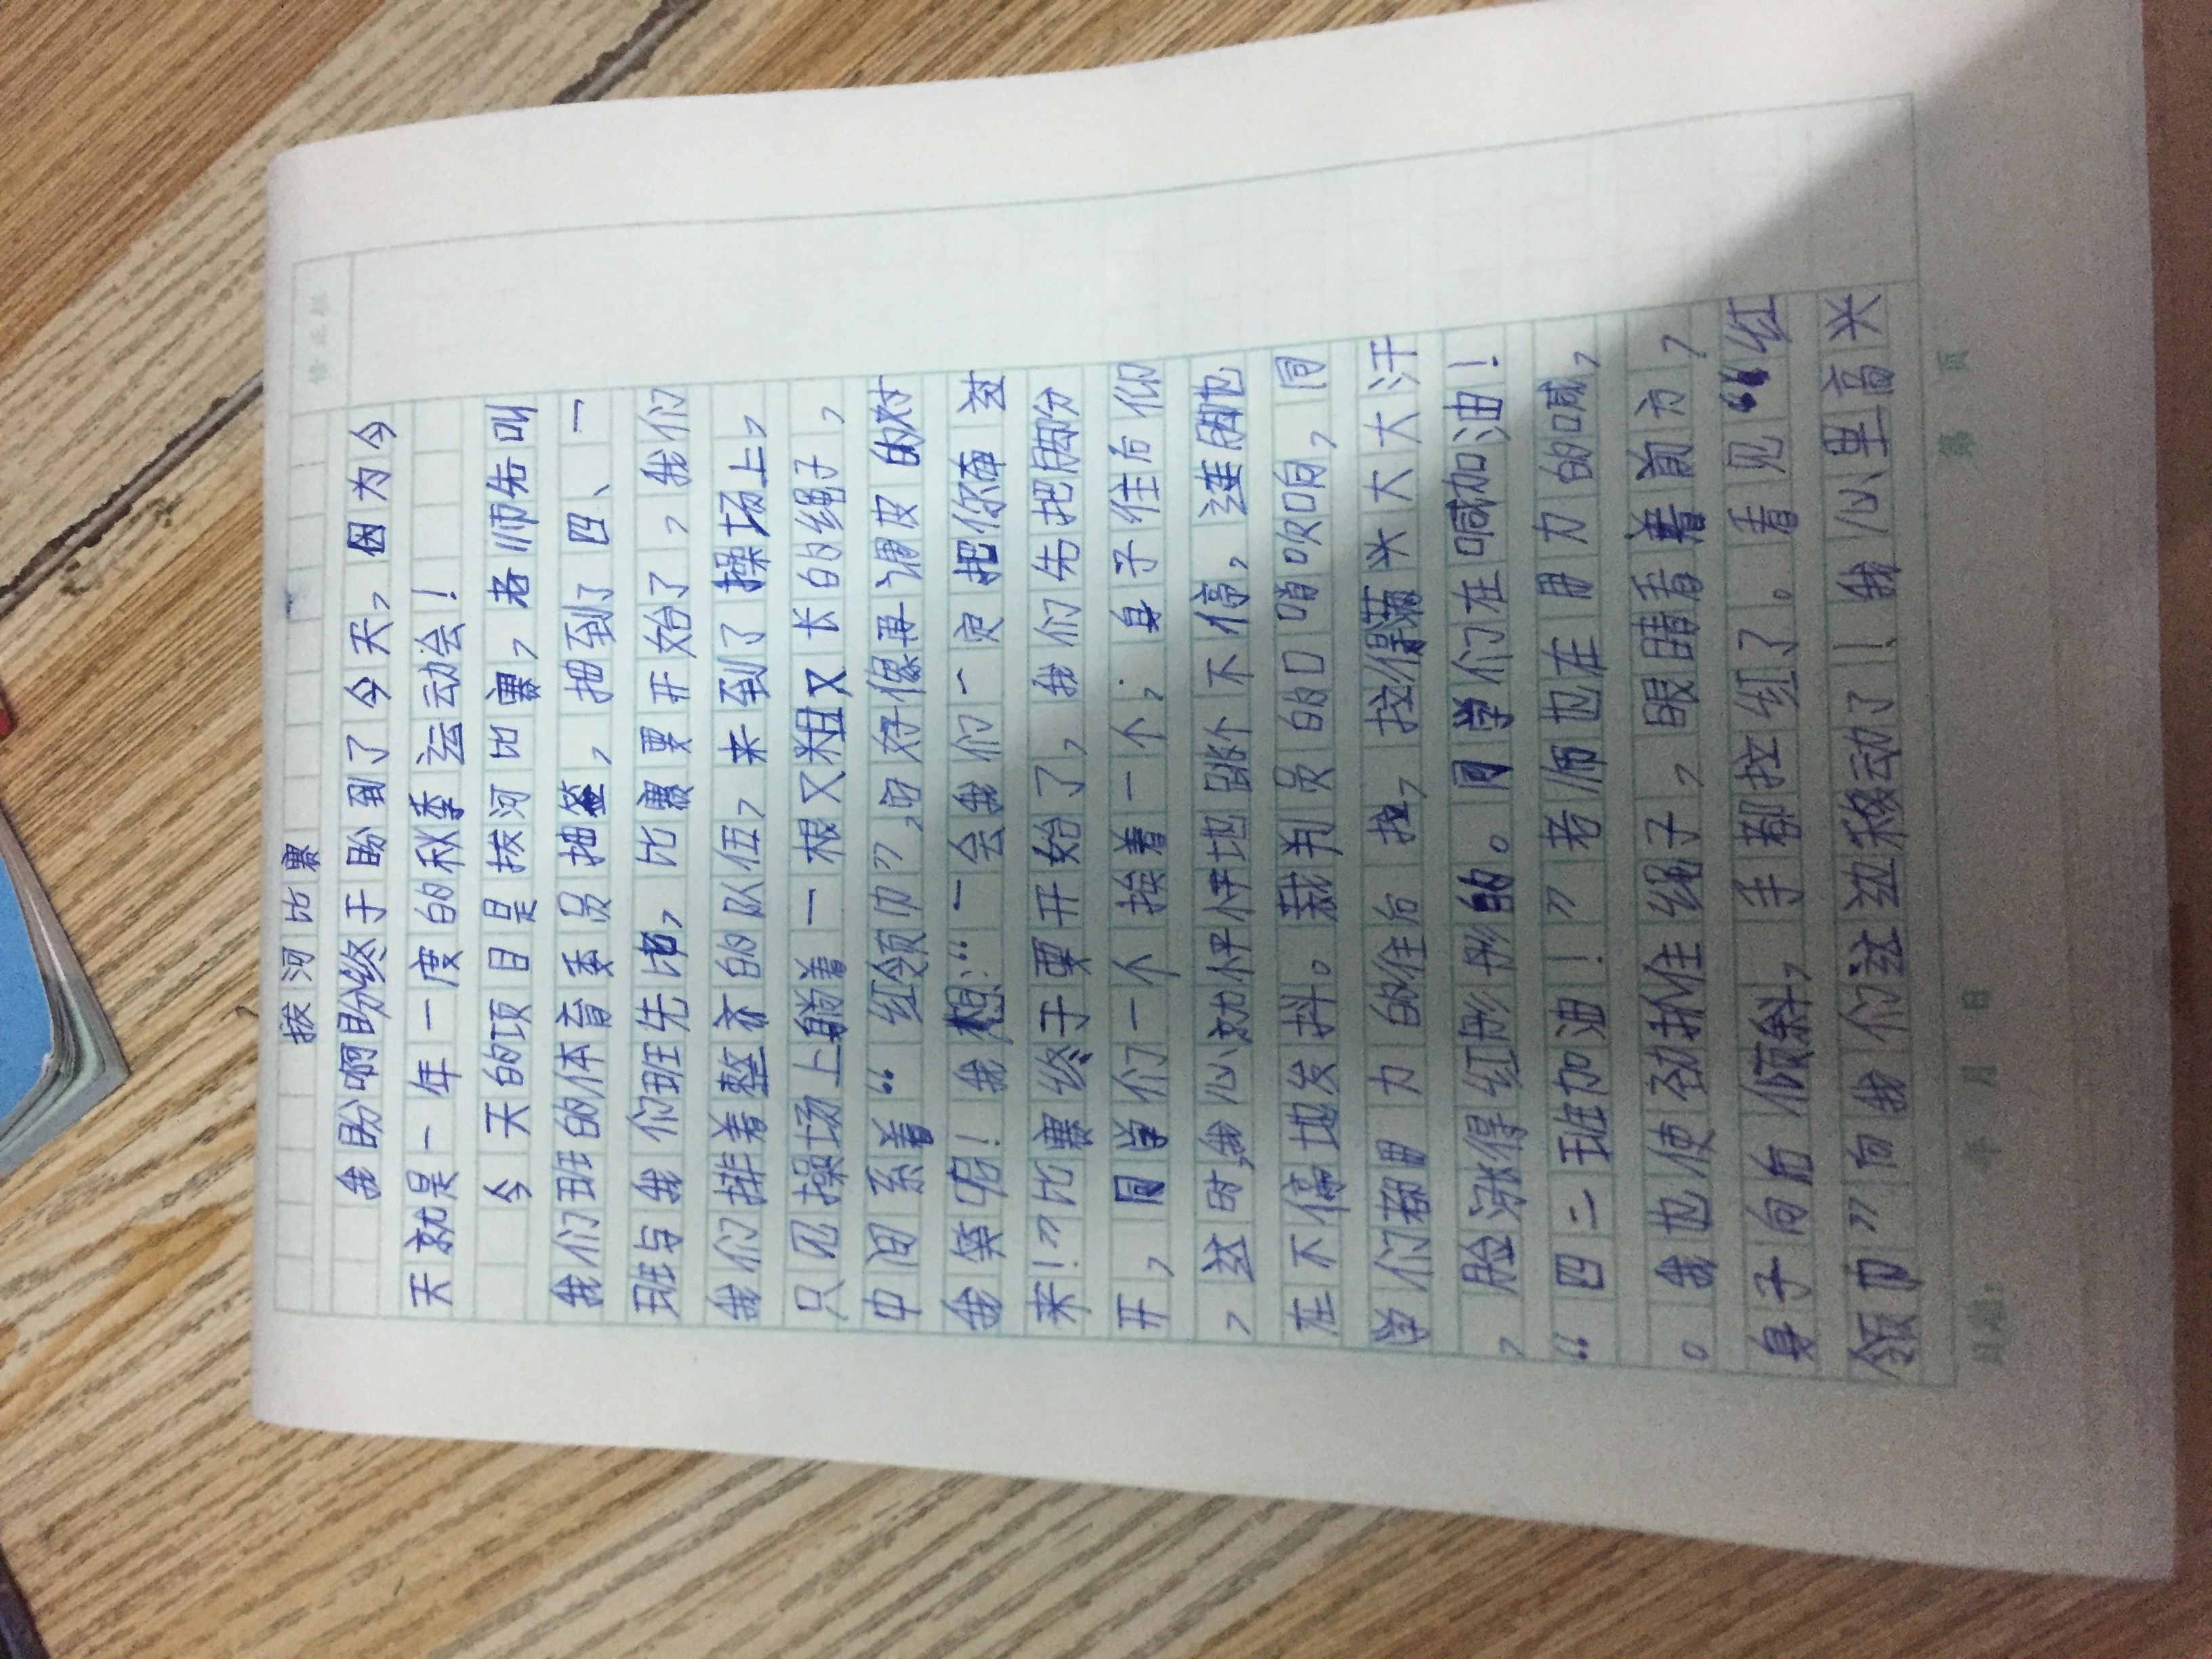 拔河比赛
我盼啊盼终于盼到了今天，因为今
天就是一年一度的秋季运动会！
今天的项目是拔河比赛，老师先叫
我们班的体育委员抽签，抽到了四、一
班与我们班先比，比赛要开始了，我们
我们排着整齐的队伍，来到了操场上，
只见操场上躺着一根又粗又长的绳子，
中间系着“红领巾”，它好像再调皮的对
我笑呢！我想：“一会我们一定把你带这
来！”比赛终于要开始了，我们先把脚分
开，同学们一个挨着一个，身子往后仰
，这时我心就怦怦地跳个不停，连脚也
在不停地发抖。裁判员的口哨吹响，同
学们用力的往后拉，拉得满头大大汗
，脸涨得红彤彤的。同学们在喊加油！
“四二班加油！”老师也在用力的喊，
。我也使劲抓住绳子，眼睛看着前方，
身子向后倾斜，手都拉红了。看见“红
领巾”向我们这边移动了！我心里高兴
修正栏
日期： 年 月 日
第 页